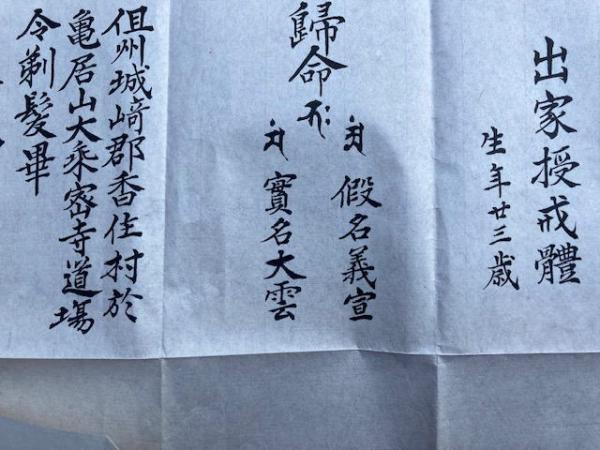 出家授戒體
生年廿三歳
歸命
假名義宣
實名大雲
但州城﨑郡香住村於
亀居山大乘密寺道場
令剃髪畢